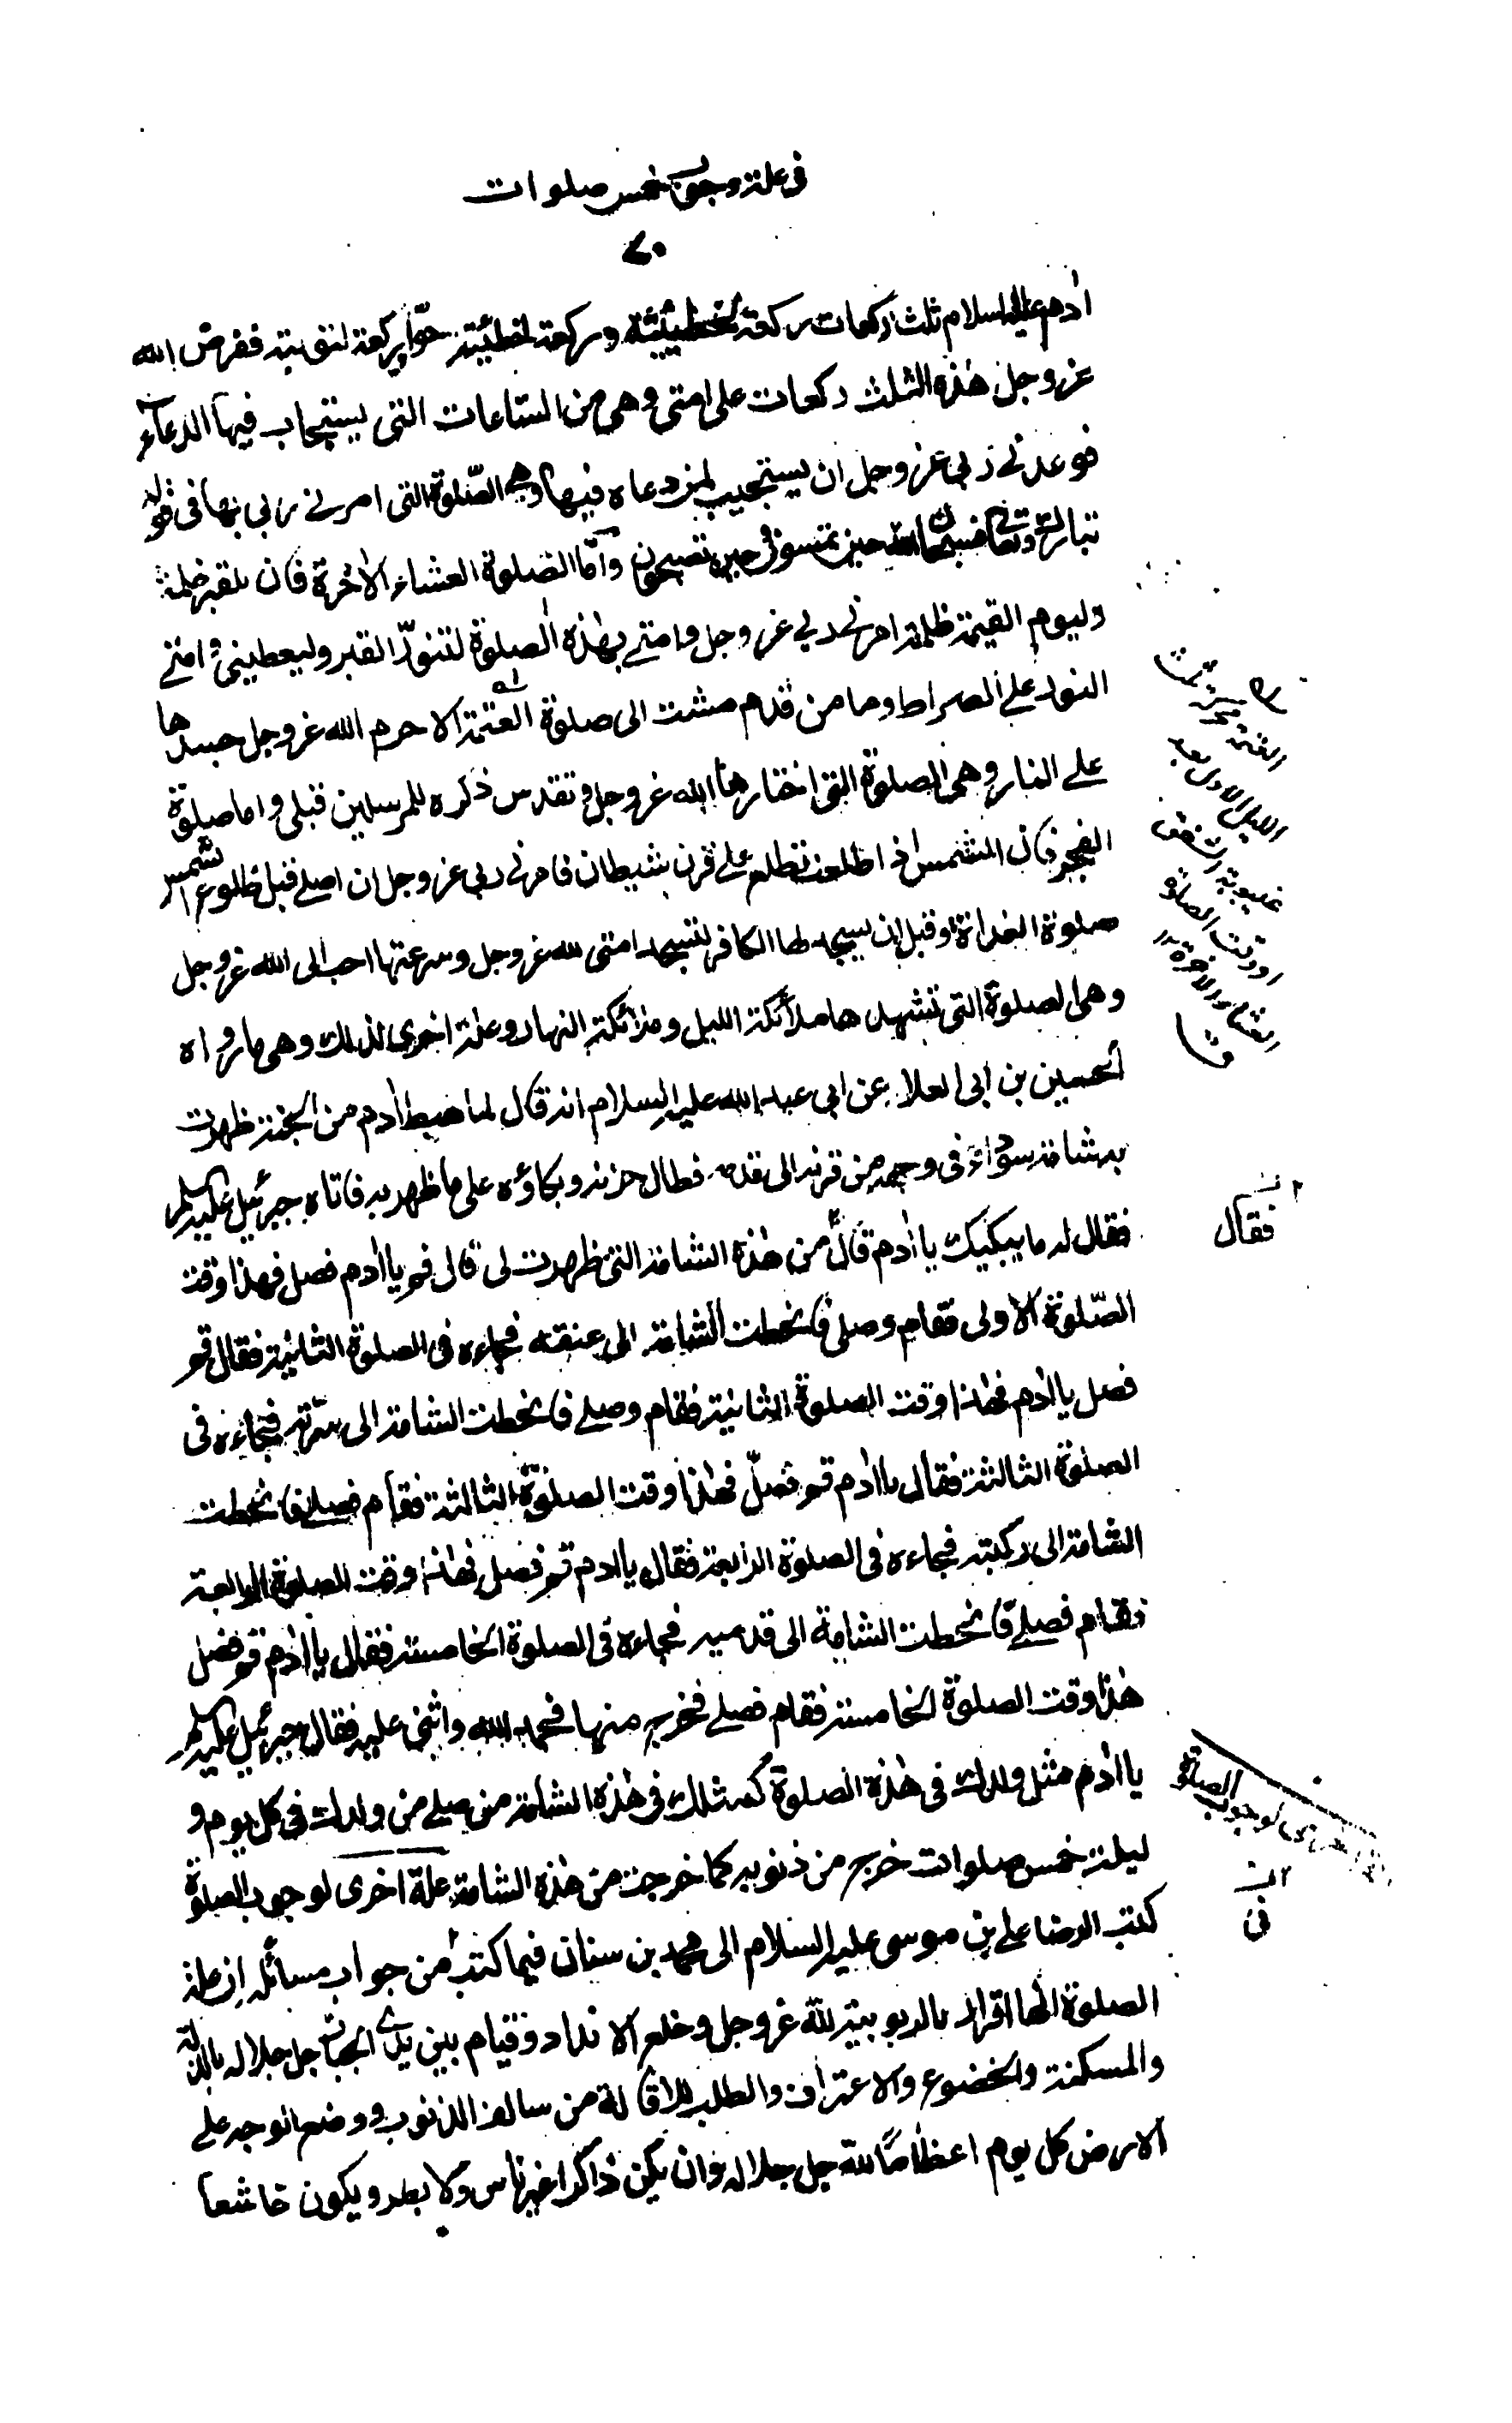 فى علة وجوب خمس صلوات
٧٠
ادم عليه السلام ثلث ركعات ركعة لخطيئته وركعة لخطيئة حوّا وركعة لتوبته ففرض الله
عز وجل هذه الثلث ركعات على امتى وهى من الساعات التى يستجاب فيها الدعاء
فوعدنى ربى عز وجل ان يستجيب لمن دعاه فيها وهى الصّلوة التى امرنى ربى بها فى قوله
تبارك وتعالى فسبحان الله حين تمسون وحين تصبحون وامّا الصلوة العشاء الاخرة فان للقبر ظلمة
وليوم القيمة ظلمة امرنى ربى عز وجل وامتى بهذه الصلوة لتنوّر القبر وليعطينى وامتى
النور على الصراط وما من قدم مشت الى صلوة العتمة الا حرم الله عز وجل جسدها
على النار وهى الصلوة التى اختارها الله عز وجل وتقدس ذكره للمرسلين قبلى واما صلوة
الفجر فان الشمس اذا طلعت تطلع على قرن شيطان فامرنى ربى عز وجل ان اصلى قبل طلوع الشمس
صلوة الغداة وقبل ان يسجد لها الكافر لتسجد امتى لله عز وجل وسرعتها احب الى الله عز وجل
وهى الصلوة التى تشهدها ملائكة الليل وملائكة النهار وعلة اخرى لذلك وهى ما رواه
الحسين بن ابى العلا عن ابى عبد الله عليه السلام انه قال لما هبط ادم من الجنة ظهرت
به شامة سوداء فى وجهه من قرنه الى قدمه فطال حزنه وبكاؤه على ما ظهر به فاتاه جبرئيل عليه السلم
فقال له ما يبكيك يا ادم قال من هذه الشامة التى ظهرت لى قال قم يا ادم فصل فهذا وقت
الصّلوة الاولى فقام وصلى فانحطت الشامة الى عنقه فجاءه فى الصلوة الثانية فقال قم
فصل يا ادم فهذا وقت الصلوة الثانية فقام وصلى فانحطت الشامة الى سرّته فجاءه فى
الصلوة الثالثة فقال يا ادم قم فصلّ فهذا وقت الصلوة الثالثة فقام فصلى فانحطت
الشامة الى ركبته فجاءه فى الصلوة الرابعة فقال يا ادم قم فصل فهذا وقت الصلوة الرابعة
فقام فصلى فانحطت الشامة الى قدميه فجاءه فى الصلوة الخامسة فقال يا ادم قم فصل
هذا وقت الصلوة الخامسة فقام فصلى فخرج منها فحمد الله واثنى عليه فقال جبرئيل عليه السلم
يا ادم مثل ولدك فى هذه الصلوة كمثلك فى هذه الشامة من صلى من ولدك فى كل يوم و
ليلة خمس صلوات خرج من ذنوبه كما خرجت من هذه الشامة علة اخرى لوجوب الصلوة
كتب الرضا على بن موسى عليه السلام الى محمد بن سنان فيما كتب من جواب مسائله ان علة
الصلوة انها اقرار بالربوبية لله عز وجل وخلع الانداد وقيام بين يدى الجبار جل جلاله بالذلة
والمسكنة والخضوع والاعتراف والطلب للاقالة من سالف الذنوب ووضع الوجه على
الارض كل يوم اعظاما لله جل جلاله وان يكون ذاكرا غير ناس ولا بطر ويكون خاشعا
العتمة محركة ثلث
الليل الاول بعد
غيبوبة الشفق
او وقت الصلوة
العشاء الاخرة
ق
فقال
لوجوب الصلوة
فى